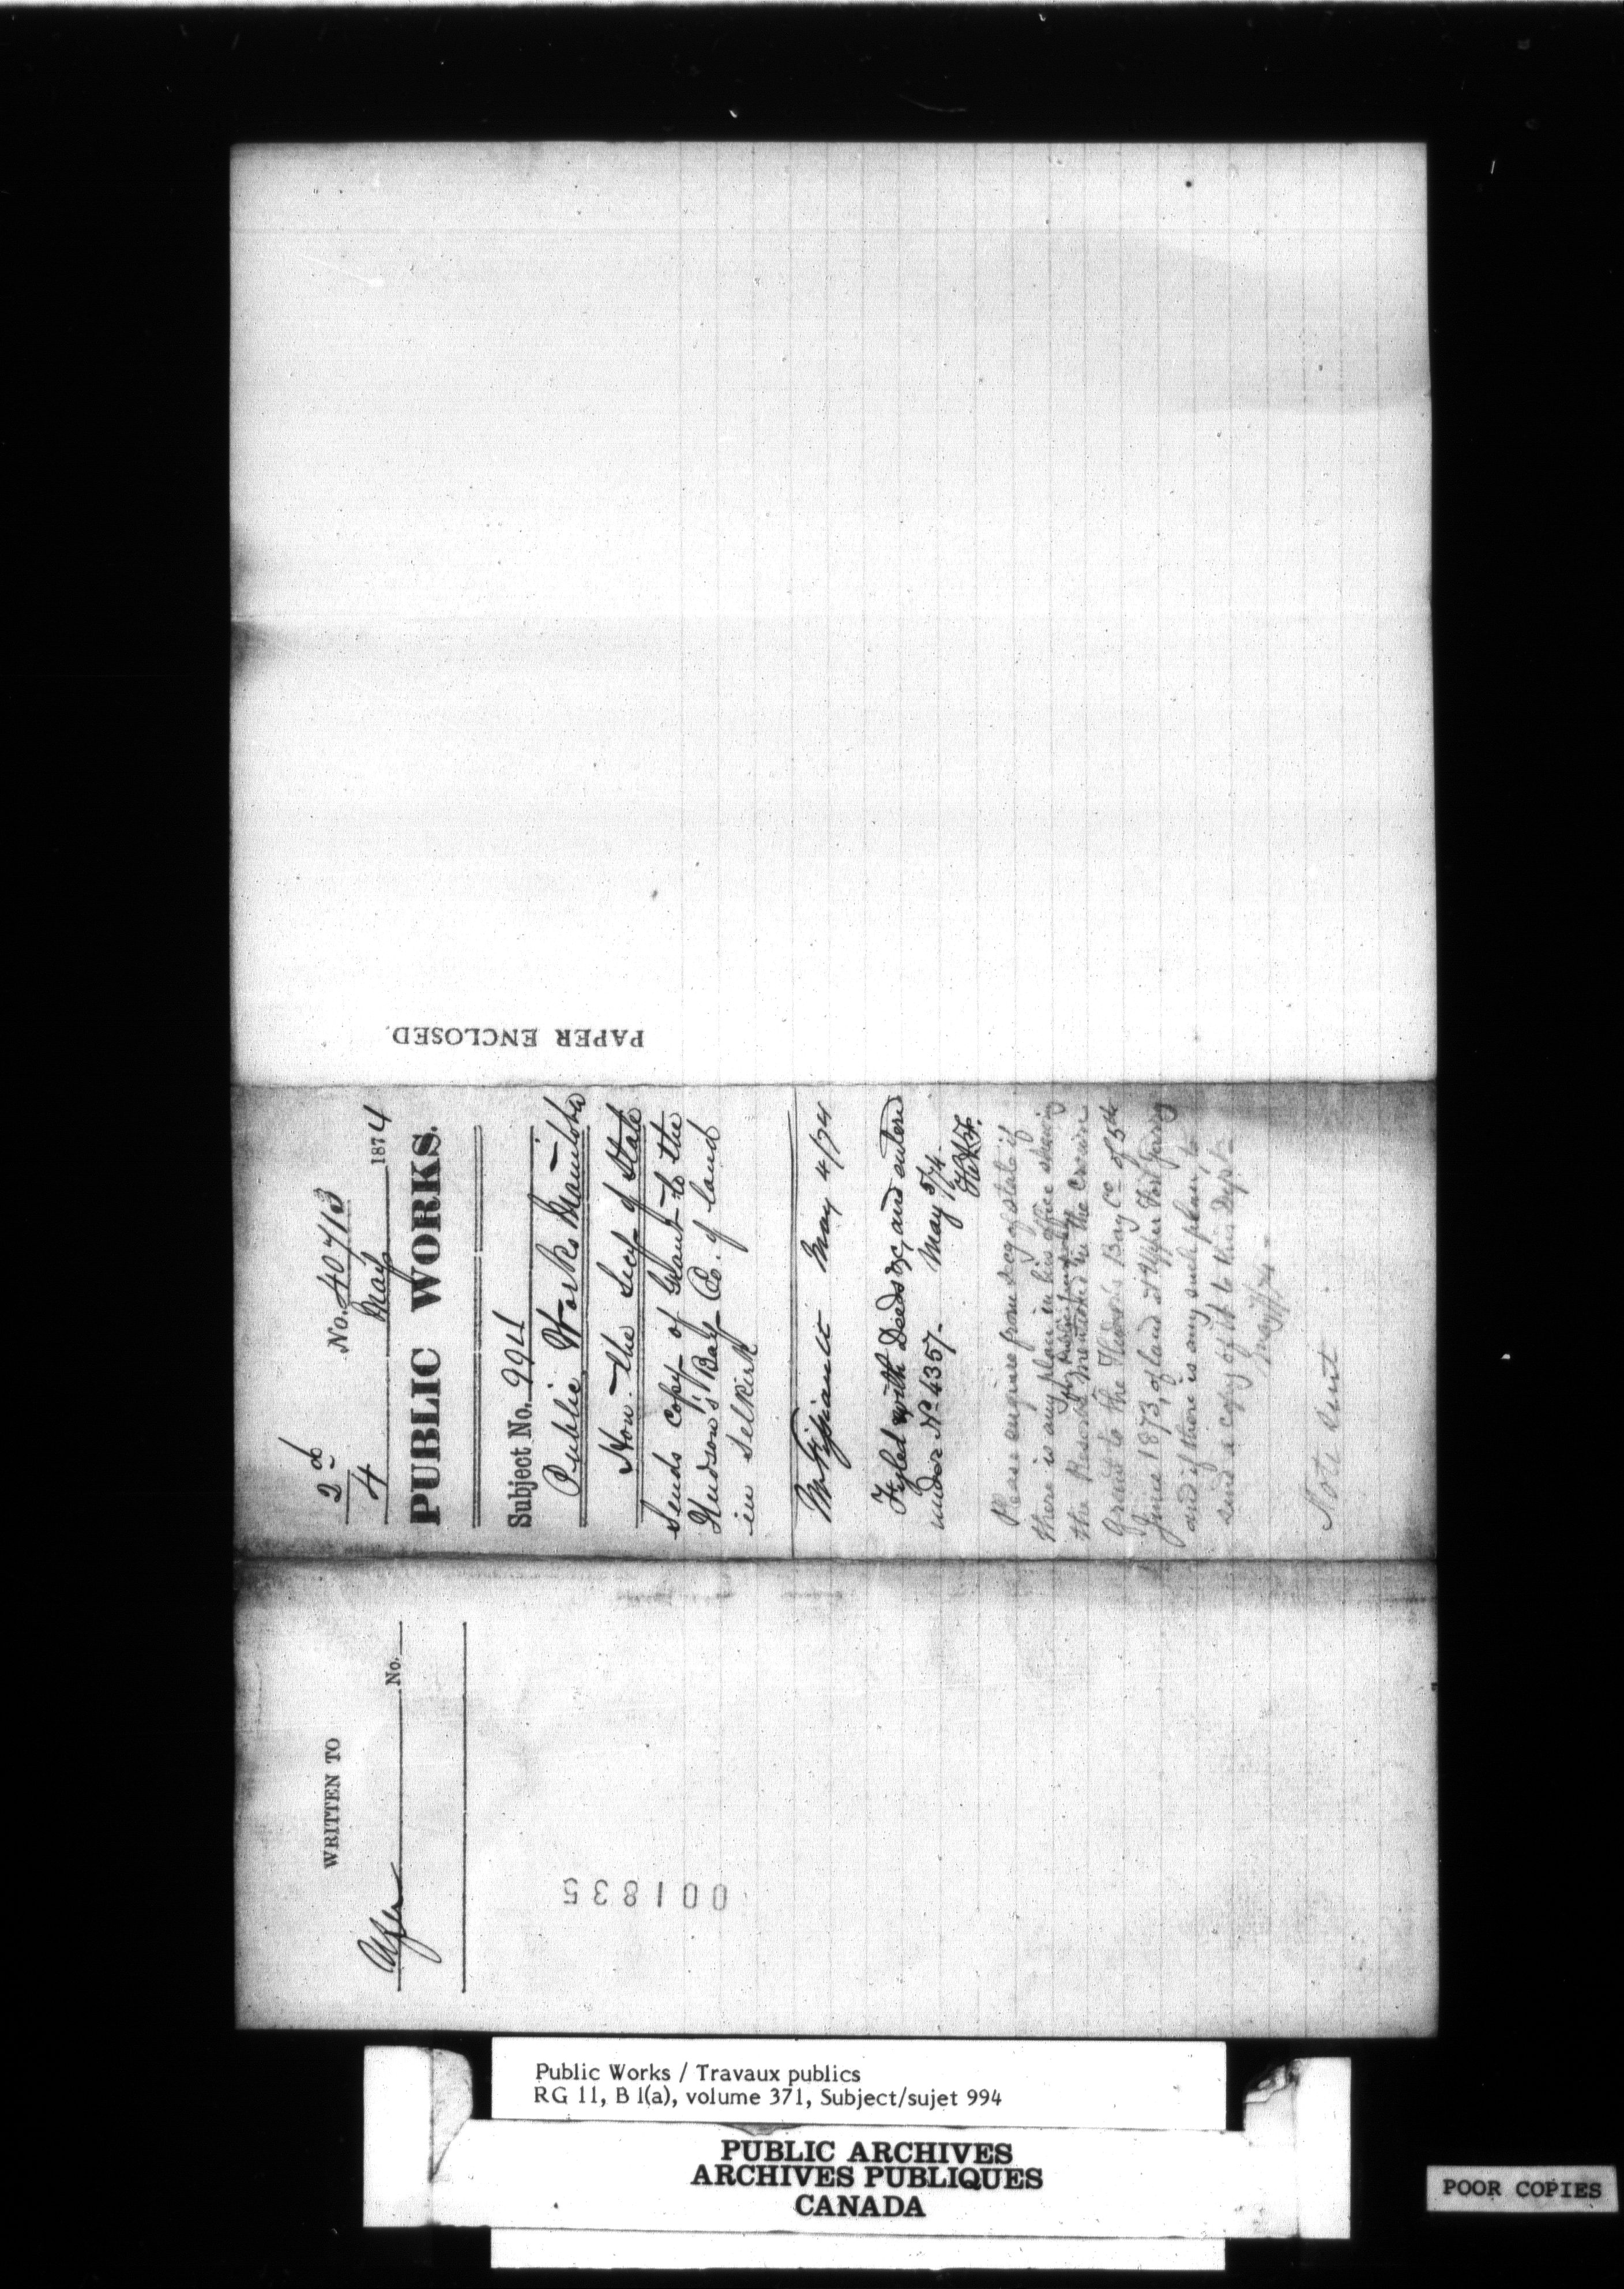 PAPER ENCLOSED.
2d
No. 40713
4 May 1874
PUBLIC WORKS.
Subject No. 994
Public Works Manitoba
Hon. the Secy of State
Sends copy of Grant to the
Hudson's Bay Co. of land
in Selkirk
May 4/74
Fyled with Deeds &c, and entered
under No 4357- May 5/74.
Please enquire from Secy of State if
there is any plan in his office showing
the Reserves mentioned in the Crown
for public purposes
Grant to the Hudson's Bay Co of 5th
June 1873, of land at Upper Fort Garry
and if there is any such plan, to
send a copy of it to this Dept-
May 7/74-
Note sent
WRITTEN TO
No.
001835
Public Works / Travaux publics
RG 11, B 1(a), volume 371, Subject/sujet 994
PUBLIC ARCHIVES
ARCHIVES PUBLIQUES
CANADA
POOR COPIES